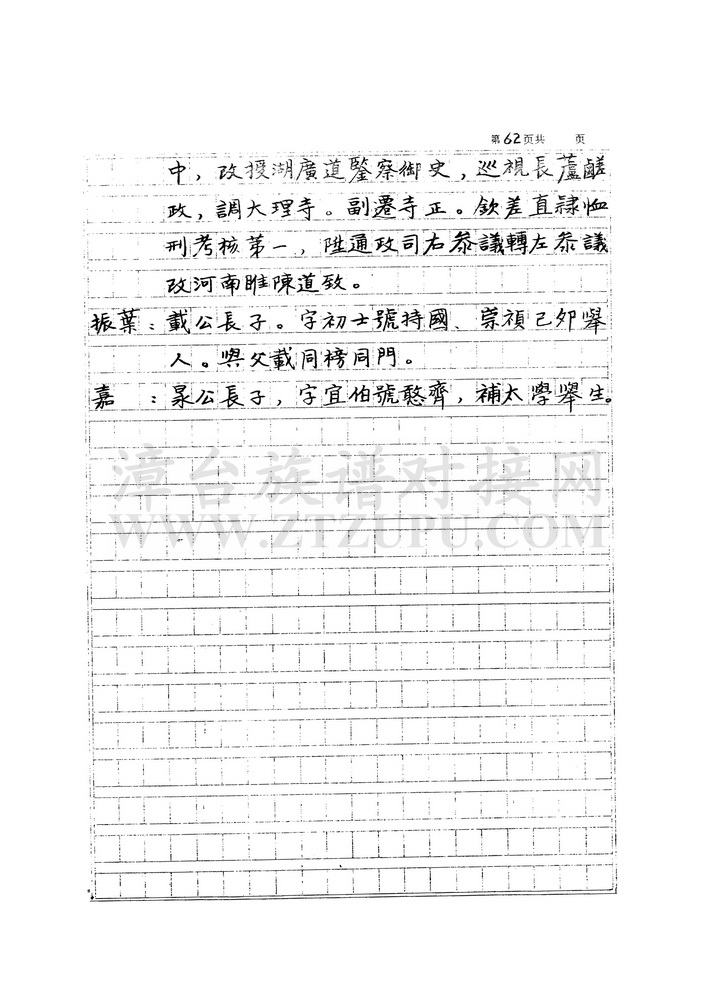 第62页共 页
中，改授湖廣道鑒察御史，巡視長蘆鹺
政，調大理寺。副遷寺正。欽差直隸恤
刑考核第一，陞通政司右參議轉左參議
改河南睢陳道致。
振葉：載公長子。字初士號持國、崇禎己卯舉
人。與父載同榜同門。
嘉：杲公長子，字宜伯號憨齊，補太學舉生。
漳台族谱对接网
WWW.ZTZUPU.COM